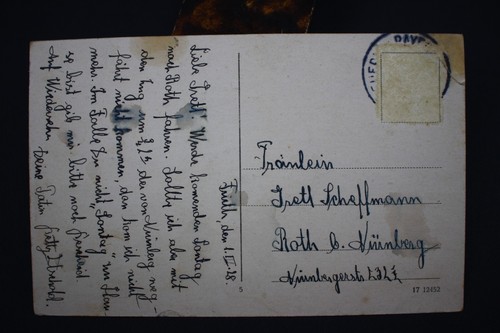 Fürth, den 1.III.28.
Liebe Gretl! Werde komenden Sontag
nach Roth fahren. Sollte ich aber mit
den Zug um der von Nürnberg weg-
fährt nicht kommen, dan kom ich nicht
mehr. Im Falle Du nicht „Sontag“ zu Hau
se bist gib mir bitte noch
Auf Wiedersehn
Fräulein
Gretl Scheffmann
Roth b. Nürnberg
Nürnbergerstr.
5
17 12452